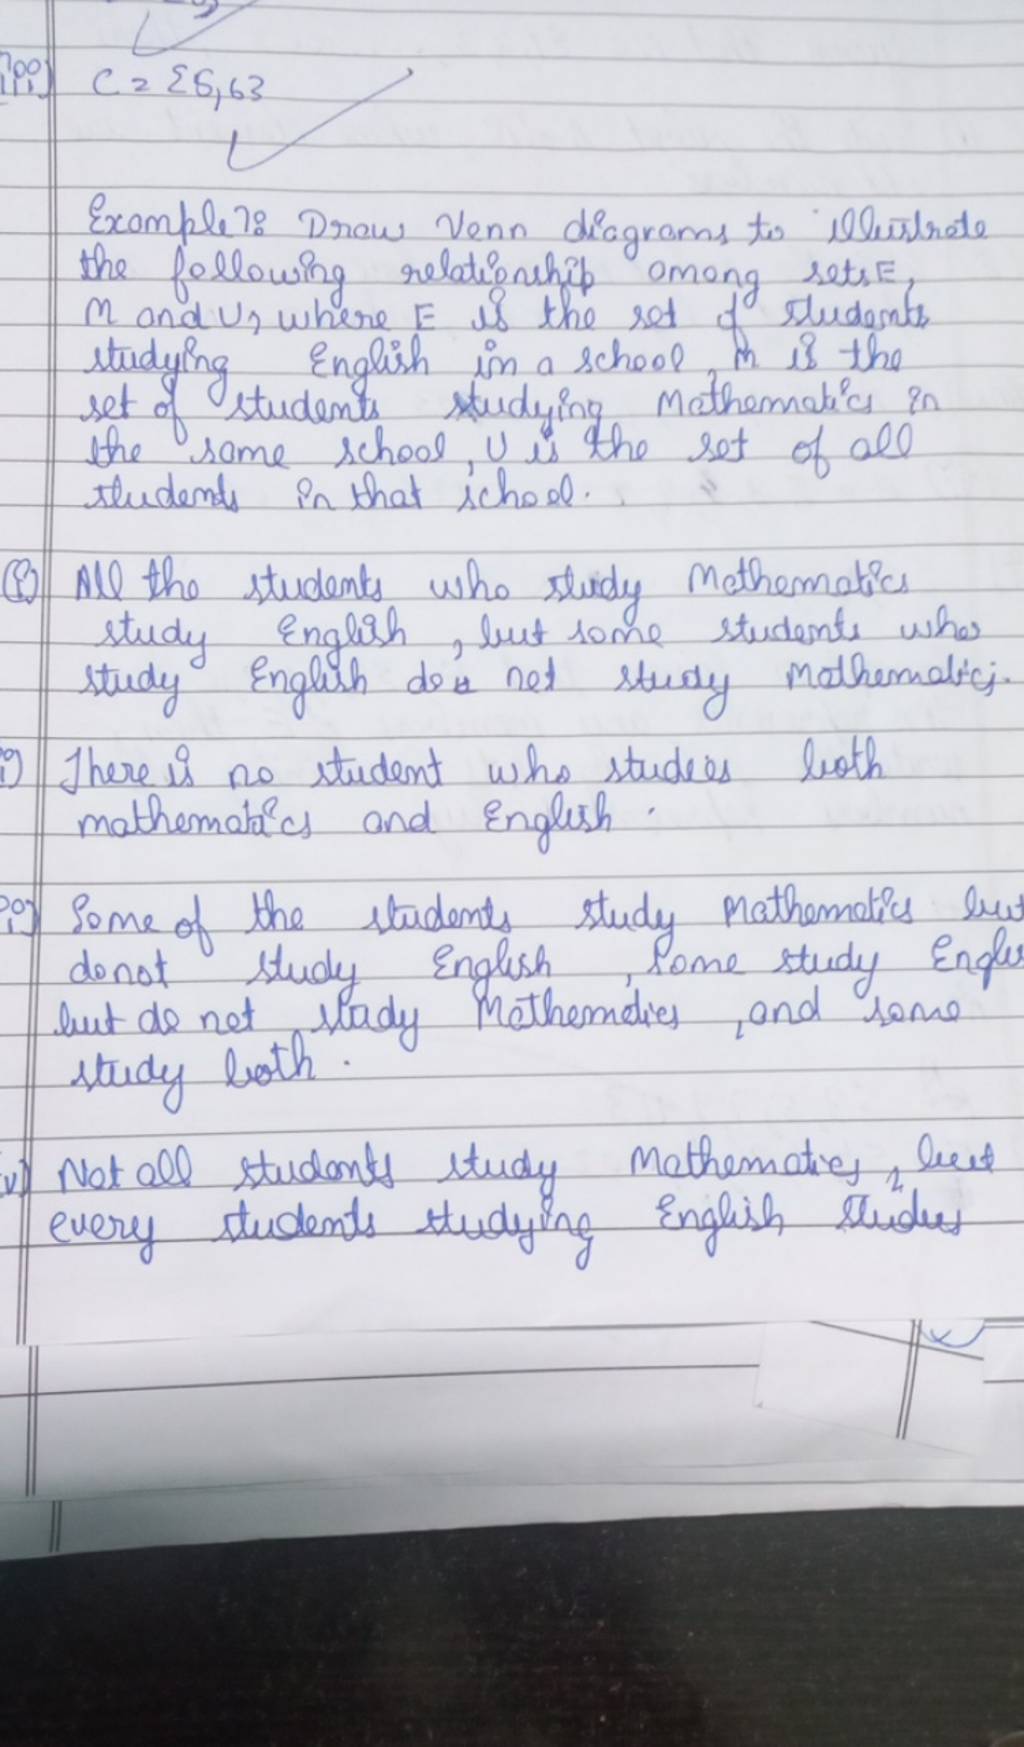 iii) C = {5,6}
Example 7: Draw Venn diagrams to illustrate
the following relationship among sets E,
M and U, where E is the set of students
studying English in a school, M is the
set of students studying Mathematics in
the same school, U is the set of all
students in that school.
(i) All the students who study Mathematics
study English, but some students who
study English do not study Mathematics.
i) There is no student who studies both
mathematics and English.
iii) Some of the students study Mathematics but
do not study English, Some study
but do not study Mathematics, and some
study both.
v) Not all students study Mathematics, but
every students studying English studies